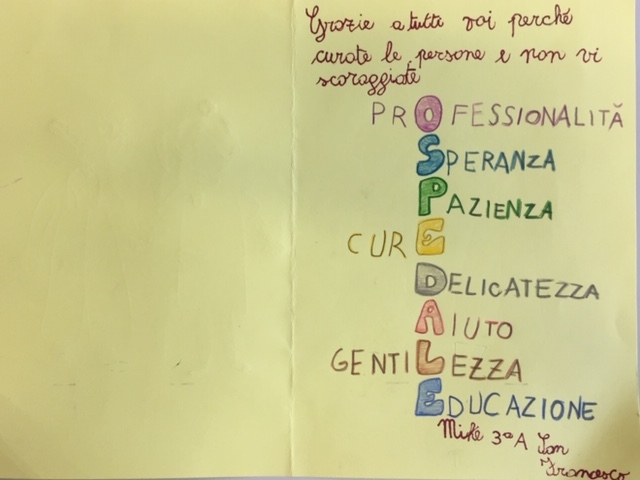 Grazie a tutti voi perché
curate le persone e non vi
scoraggiate
PROFESSIONALITÀ
SPERANZA
PAZIENZA
CURE
DELICATEZZA
AIUTO
GENTILEZZA
EDUCAZIONE
3ªA San
Francesco